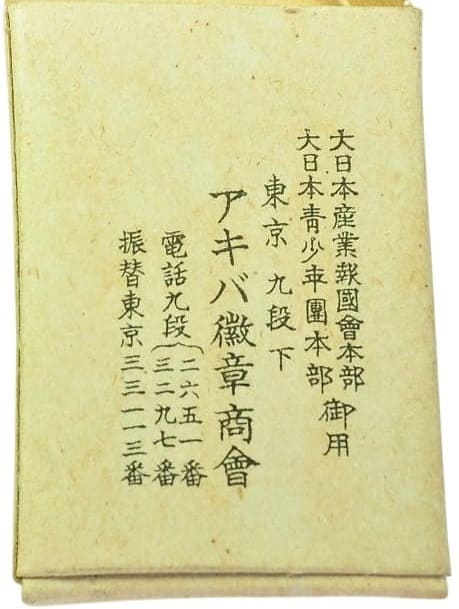 大日本産業報國會本部
大日本青少年團本部
御用
東京九段下
アキバ徽章商會
電話九段
二六五一番
三二九七番
振替東京三三一一三番